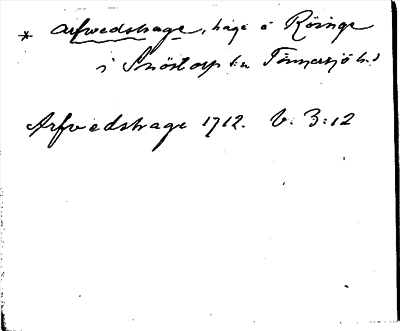 * Arfwedshage, hage i Rösinge
i Snöstorp sn Tönnersjö hd
Arfvedshage 1712. V: 3:12